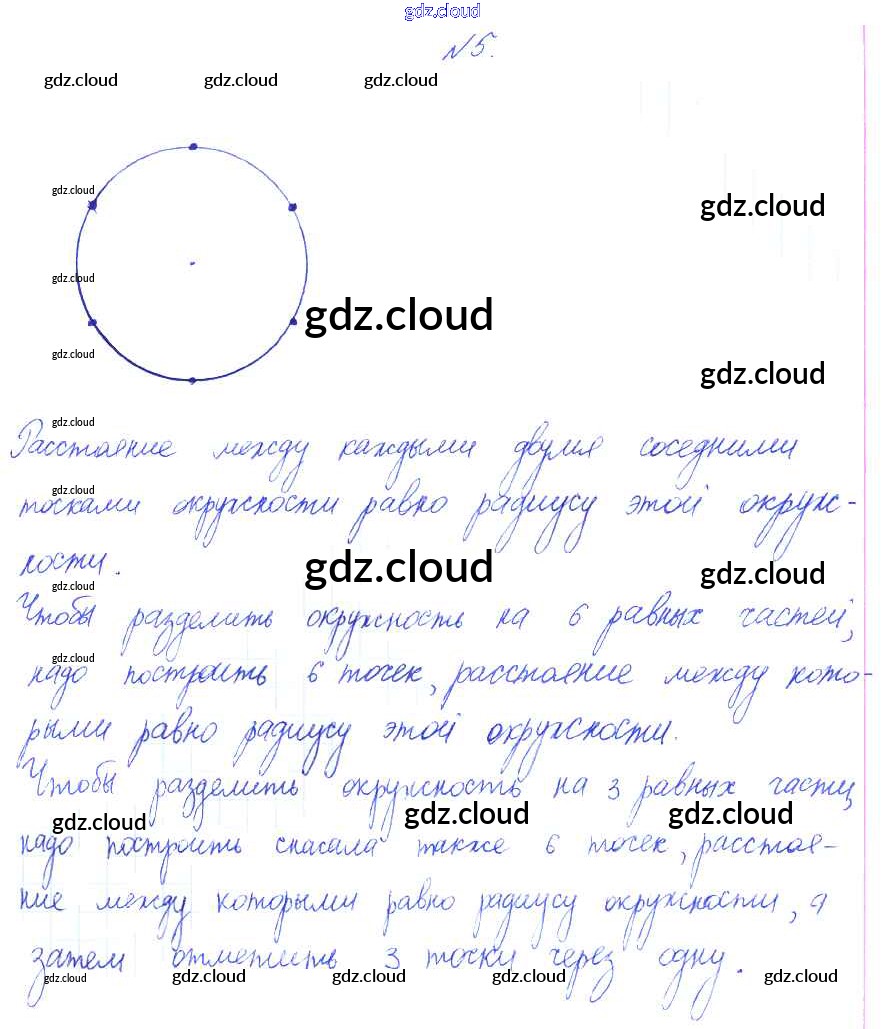 gdz.cloud
N5.
gdz.cloud gdz.cloud gdz.cloud
gdz.cloud
gdz.cloud
gdz.cloud
gdz.cloud
gdz.cloud
gdz.cloud
gdz.cloud
Расстояние между каждыми двумя соседними
gdz.cloud
точками окружности равно радиусу этой окруж-
ности.
gdz.cloud gdz.cloud
gdz.cloud
Чтобы разделить окружность на 6 равных частей,
gdz.cloud
надо построить 6 точек, расстояние между кото-
рыми равно радиусу этой окружности.
Чтобы разделить окружность на 3 равных части,
gdz.cloud gdz.cloud gdz.cloud
надо построить сначала также 6 точек, расстоя-
ние между которыми равно радиусу окружности, а
затем отметить 3 точки через одну.
gdz.cloud gdz.cloud gdz.cloud gdz.cloud gdz.cloud